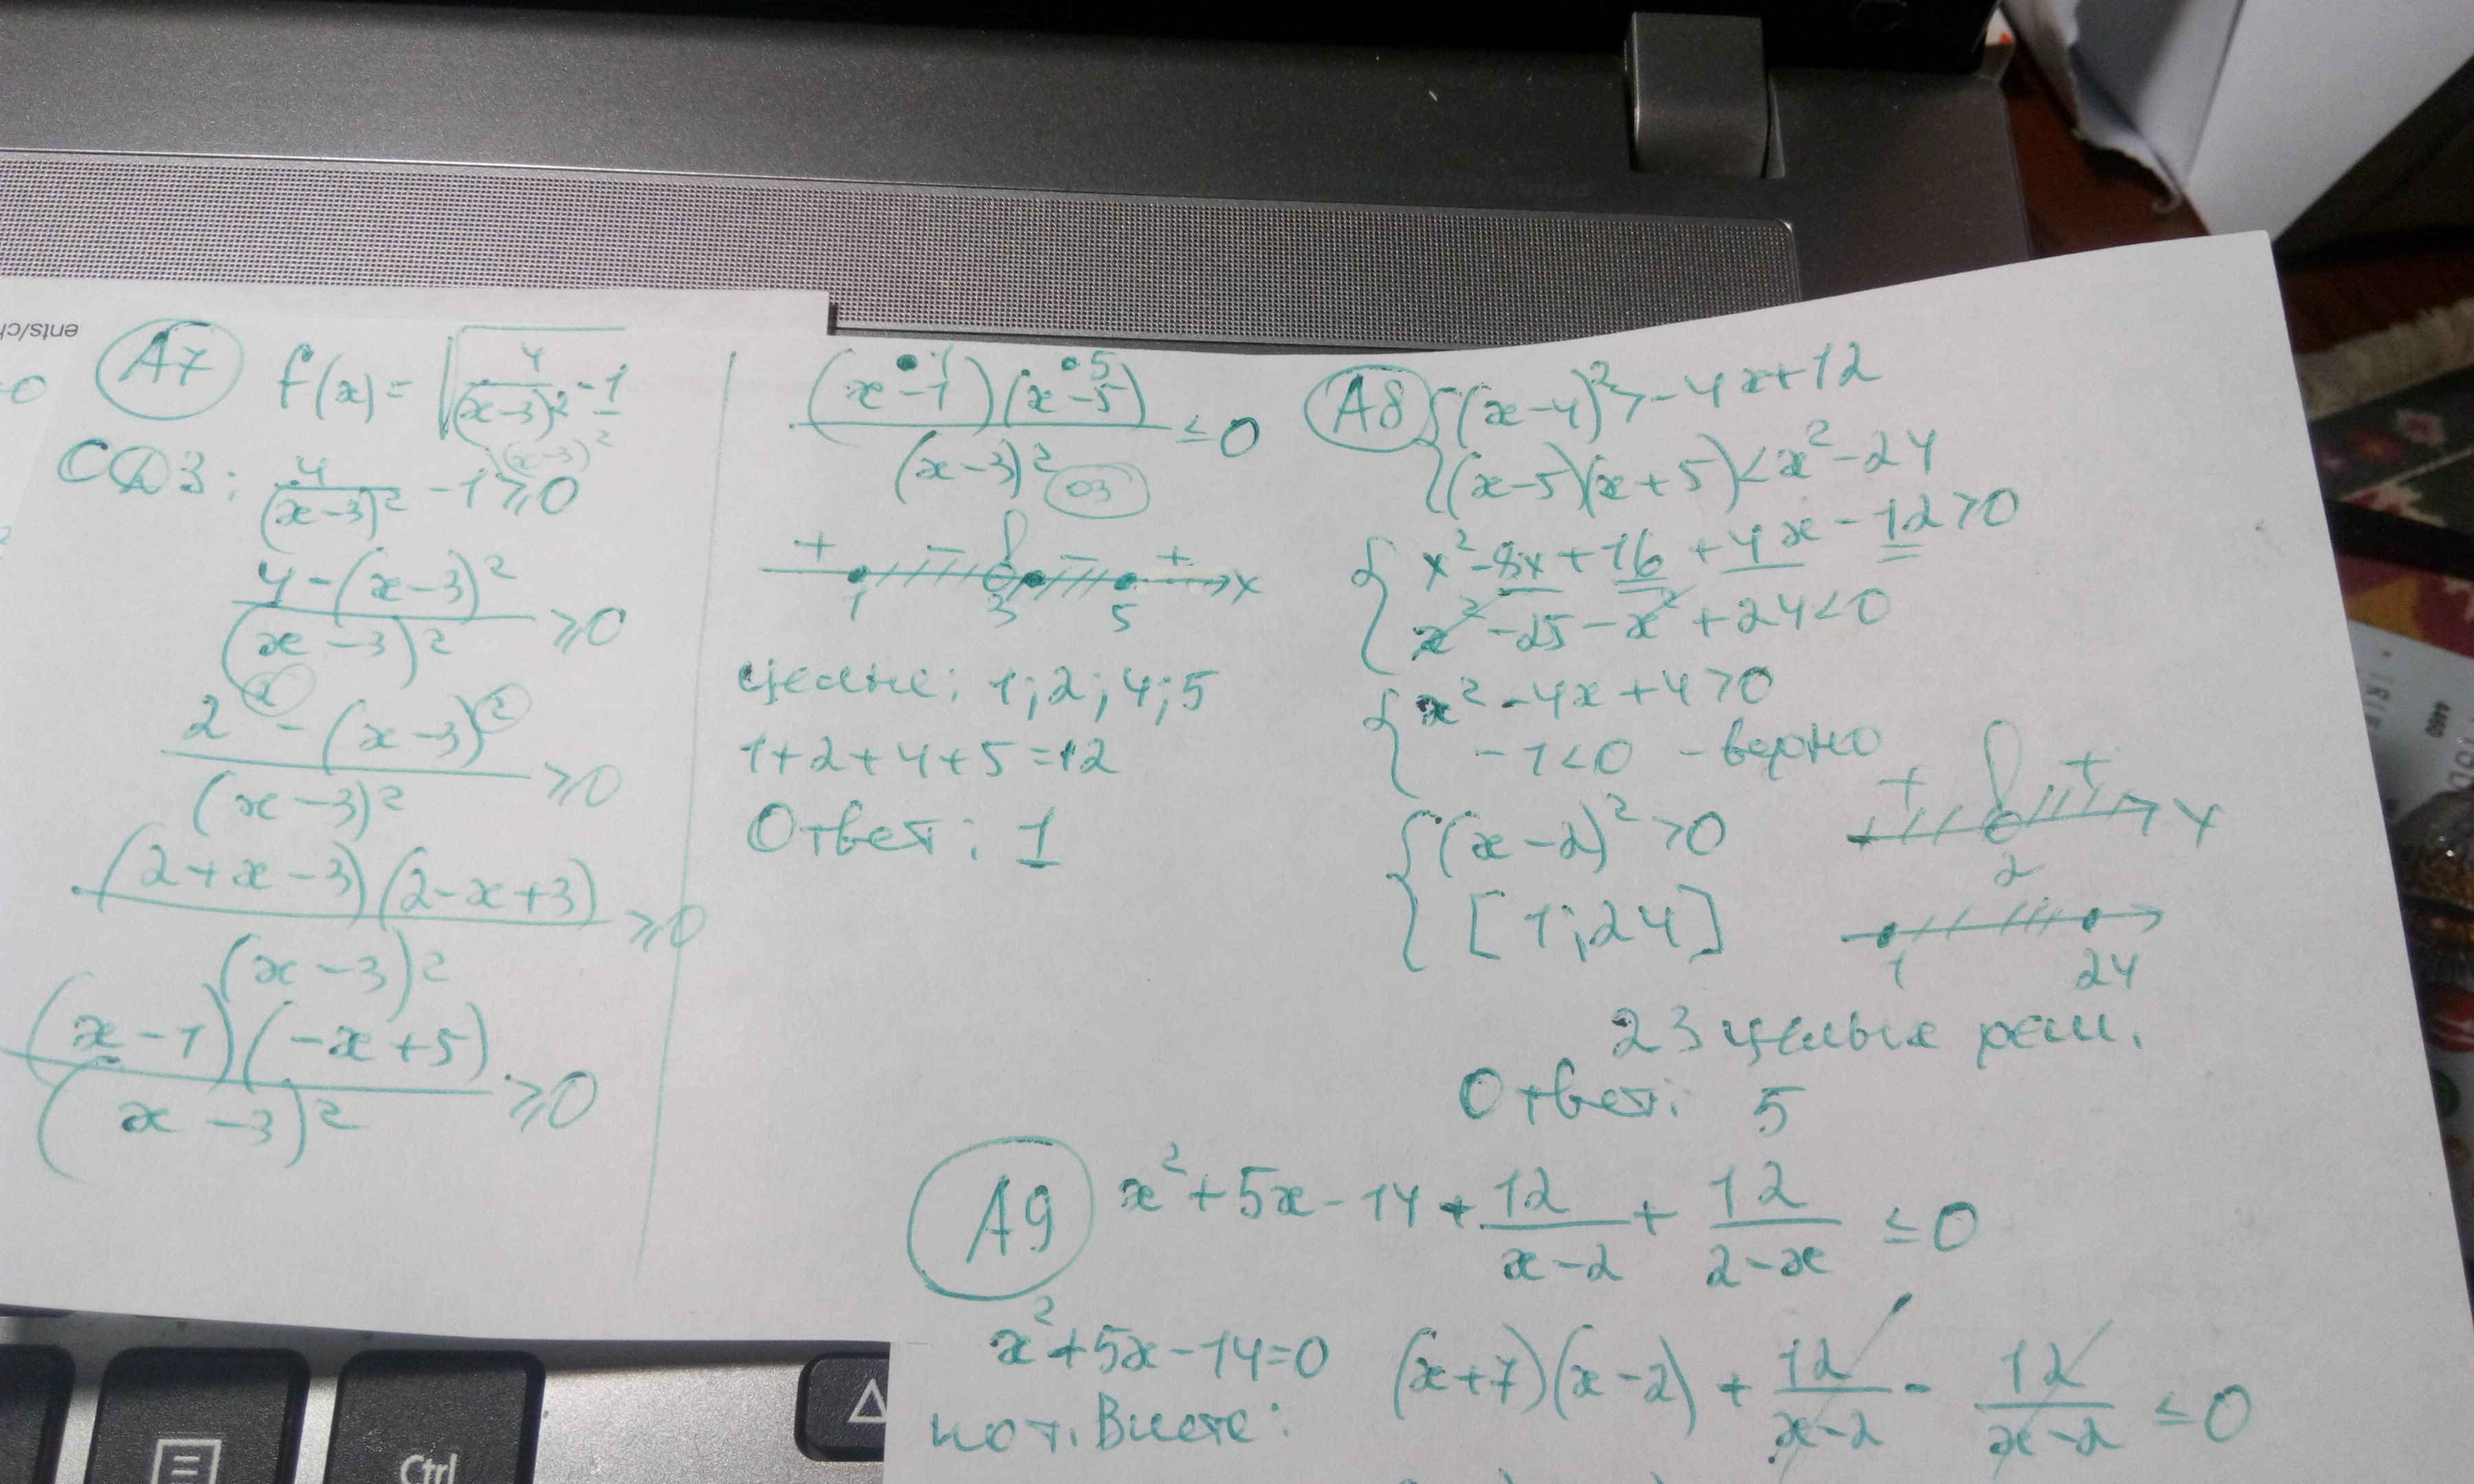 A7 f(x) = √(4/(x-3)² - 1)
ООЗ: 4/(x-3)² - 1 ≥ 0 (x-3)²
(4-(x-3)²)/(x-3)² ≥ 0
(2² - (x-3)²)/(x-3)² ≥ 0
((2+x-3)(2-x+3))/(x-3)² ≥ 0
((x-1)(-x+5))/(x-3)² ≥ 0
•1 •5
((x-1)(x-5))/(x-3)² ≤ 0
o3
+ - - +
1 3 5 x
целые: 1; 2; 4; 5
1+2+4+5=12
Ответ: 1
A8 { (x-4)² > -4x+12
(x-5)(x+5) < x²-24
{ x²-8x+16+4x-12>0
x²-25-x²+24<0
{ x²-4x+4>0
-1<0 - верно
{ (x-2)²>0
[1;24]
+ +
2 x
1 24
23 целых реш.
Ответ: 5
A9 x²+5x-14+12/(x-2)+12/(2-x) ≤ 0
x²+5x-14=0
по т. Виета:
(x+7)(x-2)+12/(x-2)-12/(x-2) ≤ 0
ents/ch
=0
Ctrl